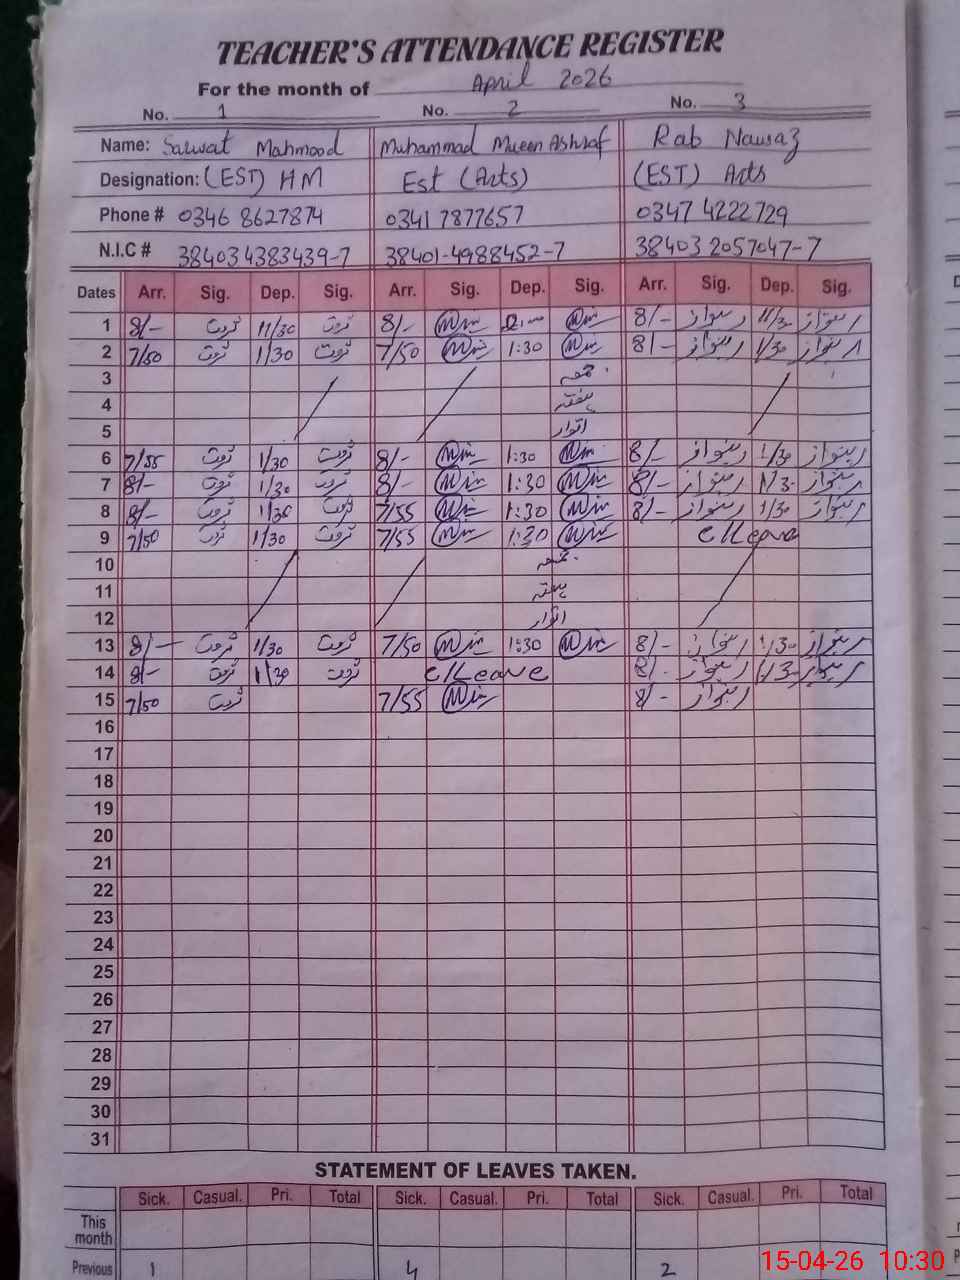 TEACHER'S ATTENDANCE REGISTER
For the month of April 2026
No. 1 No. 2 No. 3
Name: Sarwat Mahmood Muhammad Mueen Ashraf Rab Nawaz
Designation: (EST) HM Est (Arts) (EST) Arts
Phone # 0346 8627874 0341 7877657 0347 4222729
N.I.C # 384034383439-7 38401-4988452-7 38403 2057047-7
Dates Arr. Sig. Dep. Sig. Arr. Sig. Dep. Sig. Arr. Sig. Dep. Sig.
1 8/- ثروت 11/30 ثروت 8/- 8/- ربنواز 11/30 ربنواز
2 7/50 ثروت 1/30 ثروت 7/50 1:30 8/- ربنواز 1/30 ربنواز
3 جمعہ
4 ہفتہ
5 اتوار
6 7/55 ثروت 1/30 ثروت 8/- 1:30 8/- ربنواز 1/30 ربنواز
7 8/- ثروت 1/30 ثروت 8/- 1:30 8/- ربنواز 1/30 ربنواز
8 8/- ثروت 1/30 ثروت 7/55 1:30 8/- ربنواز 1/30 ربنواز
9 7/50 ثروت 1/30 ثروت 7/55 1:30 c/Leave
10 جمعہ
11 ہفتہ
12 اتوار
13 8/- ثروت 1/30 ثروت 7/50 1:30 8/- ربنواز 1/30 ربنواز
14 8/- ثروت 1/30 ثروت c/Leave 8/- ربنواز 1/30 ربنواز
15 7/50 ثروت 7/55 8/- ربنواز
16
17
18
19
20
21
22
23
24
25
26
27
28
29
30
31
STATEMENT OF LEAVES TAKEN.
Sick. Casual. Pri. Total Sick. Casual. Pri. Total Sick. Casual. Pri. Total
This month
Previous 1 4 2
15-04-26 10:30